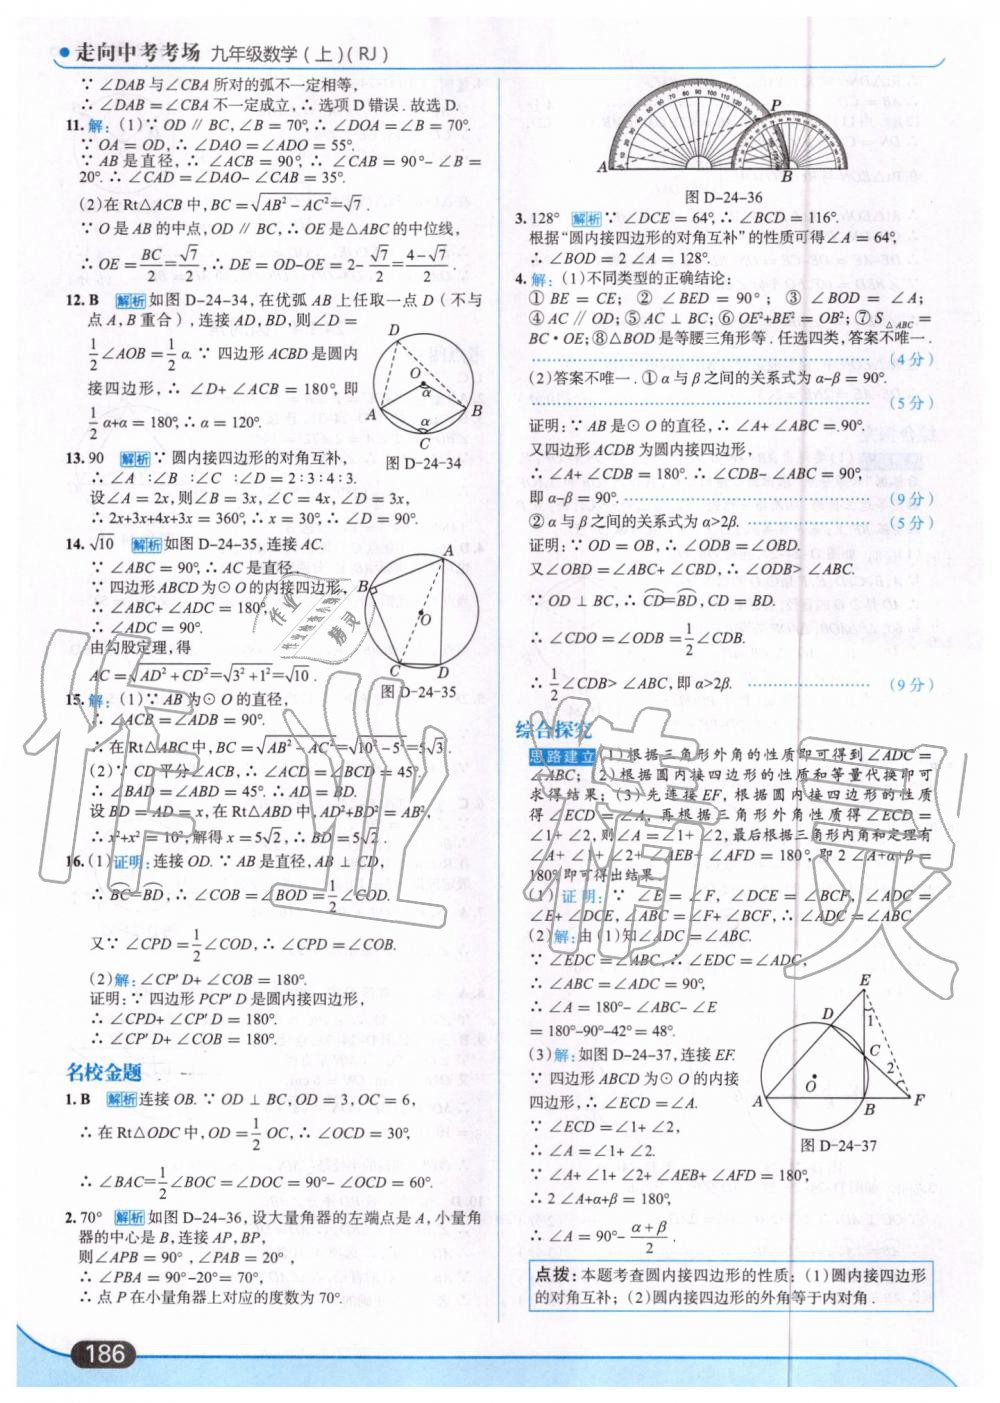 走向中考考场 九年级数学(上)(RJ)
∵ ∠DAB与∠CBA所对的弧不一定相等,
∴ ∠DAB=∠CBA不一定成立,∴ 选项D错误.故选D.
11.解:(1)∵ OD∥BC,∠B=70°,∴ ∠DOA=∠B=70°.
∵ OA=OD,∴ ∠DAO=∠ADO=55°.
∵ AB是直径,∴ ∠ACB=90°,∴ ∠CAB=90°-∠B=
20°.∴ ∠CAD=∠DAO-∠CAB=35°.
(2)在Rt△ACB中,BC=√(AB²-AC²)=√7.
∵ O是AB的中点,OD∥BC,∴ OE是△ABC的中位线,
∴ OE=BC/2=√7/2,∴ DE=OD-OE=2-√7/2=(4-√7)/2.
12.B 解析 如图D-24-34,在优弧AB上任取一点D(不与
点A,B重合),连接AD,BD,则∠D=
1/2∠AOB=1/2α.∵ 四边形ACBD是圆内
接四边形,∴ ∠D+∠ACB=180°,即
1/2α+α=180°,∴ α=120°.
D
O
α
A
B
α
C
图D-24-34
13.90 解析 ∵ 圆内接四边形的对角互补,
∴ ∠A∶∠B∶∠C∶∠D=2∶3∶4∶3.
设∠A=2x,则∠B=3x,∠C=4x,∠D=3x,
∴ 2x+3x+4x+3x=360°,∴ x=30°,∴ ∠D=90°.
14.√10 解析 如图D-24-35,连接AC.
∵ ∠ABC=90°,∴ AC是直径.
∵ 四边形ABCD为⊙O的内接四边形,
∴ ∠ABC+∠ADC=180°,
∴ ∠ADC=90°.
由勾股定理,得
AC=√(AD²+CD²)=√(3²+1²)=√10.
A
B
O
C
D
图D-24-35
15.解:(1)∵ AB为⊙O的直径,
∴ ∠ACB=∠ADB=90°.
∴ 在Rt△ABC中,BC=√(AB²-AC²)=√(10²-5²)=5√3.
(2)∵ CD平分∠ACB,∴ ∠ACD=∠BCD=45°.
∴ ∠BAD=∠ABD=45°.∴ AD=BD.
设BD=AD=x,在Rt△ABD中,AD²+BD²=AB²,
∴ x²+x²=10²,解得x=5√2,∴ BD=5√2.
16.(1)证明:连接OD.∵ AB是直径,AB⊥CD,
∴ BC=BD,∴ ∠COB=∠BOD=1/2∠COD.
又∵ ∠CPD=1/2∠COD,∴ ∠CPD=∠COB.
(2)解:∠CP′D+∠COB=180°.
证明:∵ 四边形PCP′D是圆内接四边形,
∴ ∠CPD+∠CP′D=180°.
∴ ∠CP′D+∠COB=180°.
名校金题
1.B 解析 连接OB.∵ OD⊥BC,OD=3,OC=6,
∴ 在Rt△ODC中,OD=1/2OC,∴ ∠OCD=30°,
∴ ∠BAC=1/2∠BOC=∠DOC=90°-∠OCD=60°.
2.70° 解析 如图D-24-36,设大量角器的左端点是A,小量角
器的中心是B,连接AP,BP,
则∠APB=90°,∠PAB=20°,
∴ ∠PBA=90°-20°=70°,
∴ 点P在小量角器上对应的度数为70°.
P
A
B
图D-24-36
3.128° 解析 ∵ ∠DCE=64°,∴ ∠BCD=116°.
根据“圆内接四边形的对角互补”的性质可得∠A=64°,
∴ ∠BOD=2∠A=128°.
4.解:(1)不同类型的正确结论:
①BE=CE;②∠BED=90°;③∠BOD=∠A;
④AC∥OD;⑤AC⊥BC;⑥OE²+BE²=OB²;⑦S△ABC=
BC·OE;⑧△BOD是等腰三角形等.任选四类,答案不唯一.
(4分)
(2)答案不唯一.①α与β之间的关系式为α-β=90°.
(5分)
证明:∵ AB是⊙O的直径,∴ ∠A+∠ABC=90°.
又四边形ACDB为圆内接四边形,
∴ ∠A+∠CDB=180°.∴ ∠CDB-∠ABC=90°,
即α-β=90°.(9分)
②α与β之间的关系式为α>2β.(5分)
证明:∵ OD=OB,∴ ∠ODB=∠OBD.
又∠OBD=∠ABC+∠CBD,∴ ∠ODB>∠ABC.
∵ OD⊥BC,∴ CD=BD,CD=BD.
∴ ∠CDO=∠ODB=1/2∠CDB.
∴ 1/2∠CDB>∠ABC,即α>2β.(9分)
综合探究
思路建立 (1)根据三角形外角的性质即可得到∠ADC=
∠ABC;(2)根据圆内接四边形的性质和等量代换即可
求得结果;(3)先连接EF,根据圆内接四边形的性质
得∠ECD=∠A,再根据三角形外角性质得∠ECD=
∠1+∠2,则∠A=∠1+∠2,最后根据三角形内角和定理有
∠A+∠1+∠2+∠AEB+∠AFD=180°,即2∠A+α+β=
180°即可得出结果.
(1)证明:∵ ∠E=∠F,∠DCE=∠BCF,∠ADC=
∠E+∠DCE,∠ABC=∠F+∠BCF,∴ ∠ADC=∠ABC.
(2)解:由(1)知∠ADC=∠ABC.
∵ ∠EDC=∠ABC,∴ ∠EDC=∠ADC,
∴ ∠ABC=∠ADC=90°,
∴ ∠A=180°-∠ABC-∠E
=180°-90°-42°=48°.
(3)解:如图D-24-37,连接EF.
∵ 四边形ABCD为⊙O的内接
四边形,∴ ∠ECD=∠A.
∵ ∠ECD=∠1+∠2,
∴ ∠A=∠1+∠2.
∵ ∠A+∠1+∠2+∠AEB+∠AFD=180°,
∴ 2∠A+α+β=180°,
∴ ∠A=90°-(α+β)/2.
E
D
1
C
2
O
A
B
F
图D-24-37
点拨:本题考查圆内接四边形的性质:(1)圆内接四边形
的对角互补;(2)圆内接四边形的外角等于内对角.
186
作业精灵